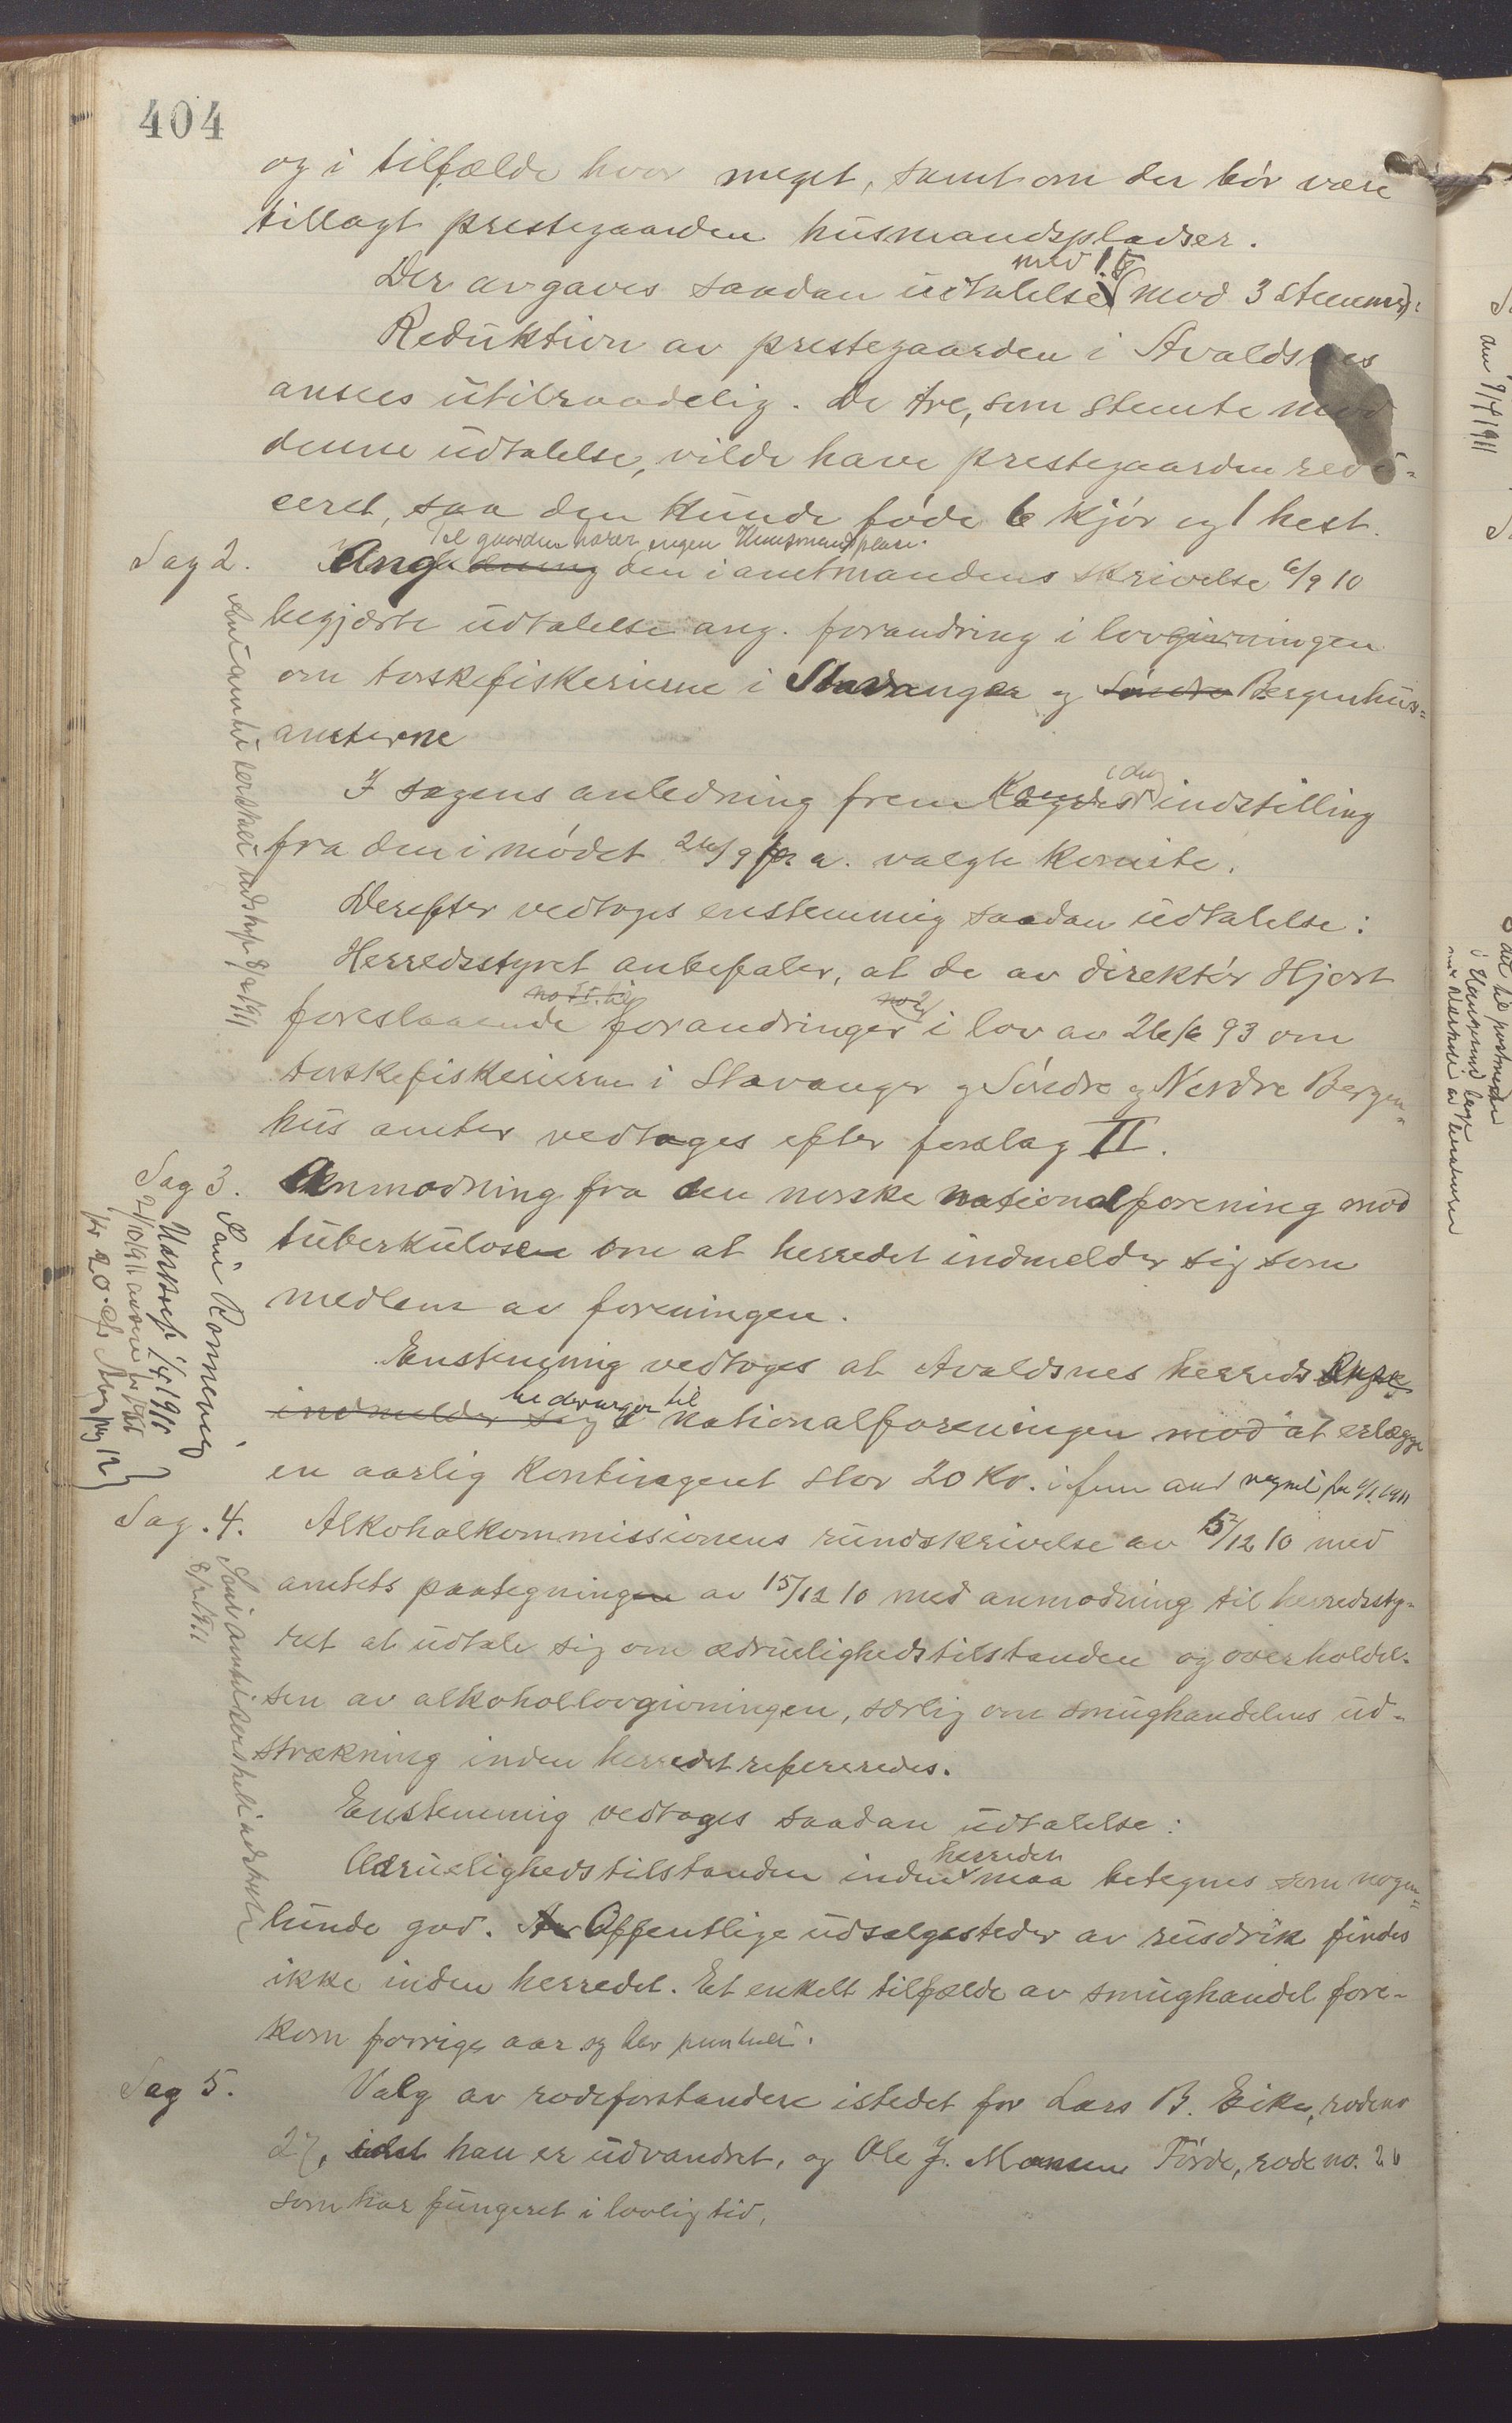 404
og i tilfælde hvor meget, samt om der bør være
tillagt prestegaarden husmandspladser.
Der avgaves saadan udtalelse med (mod 3 stemmer):
Reduktion av prestegaarden i Avaldsnes
ansees utilraadelig. De tre, som stemte mod
denne udtalelse, vilde have prestegaarden redu-
ceret, saa den kunde føde 6 kjør og 1 hest.
Til gaarden hører ingen Husmandsplads.
Sag 2. Ang den i amtmandens skrivelse 6/9 10
begjærte udtalelse ang. forandring i lovgivningen
om torskefiskerierne i Stavanger og Søndre Bergenhus-
amterne
I sagens anledning frem indstilling
fra den i mødet 26/9 f. a. valgte komite.
Derefter vedtoges enstemmig saadan udtalelse:
Herredsstyret anbefaler, at de av direktør Hjort
foreslaaende forandringer i lov av 26/6 93 om
torskefiskerierne i Stavanger og Søndre og Nordre Bergen-
hus amter vedtages efter forslag II.
Sag 3. Anmodning fra den norske nationalforening mod
tuberkulosen om at herredet indmelder sig som
medlem av foreningen.
Enstemmig vedtoges at Avaldsnes herreds
indmelder sig bidrager til nationalforeningen mod at erlægge
en aarlig kontingent stor 20 Kr. i fem aar regnet fra 1/1. 1911
Sag. 4. Alkoholkommissionens rundskrivelse av /12 10 med
amtets paategningen av 15/12 10 med anmodning til herredssty-
ret at udtale sig om ædruelighedstilstanden og overholdel-
sen av alkohollovgivningen, særlig om smughandelens ud-
strækning inden herredet refereredes.
Enstemmig vedtoges saadan udtalelse:
Ædruelighedstilstanden inden herredet maa betegnes som nogen-
lunde god. Offentlige udsalgssteder av rusdrik findes
ikke inden herredet. Et enkelt tilfælde av smughandel fore-
kom forrige aar og blev
Sag 5. Valg av rodeforstandere istedet for Lars B. Eike, rode no
27, idet han er udvandret, og Ole J. Monsen Førde, rode no. 26
som har fungeret i lovlig tid,